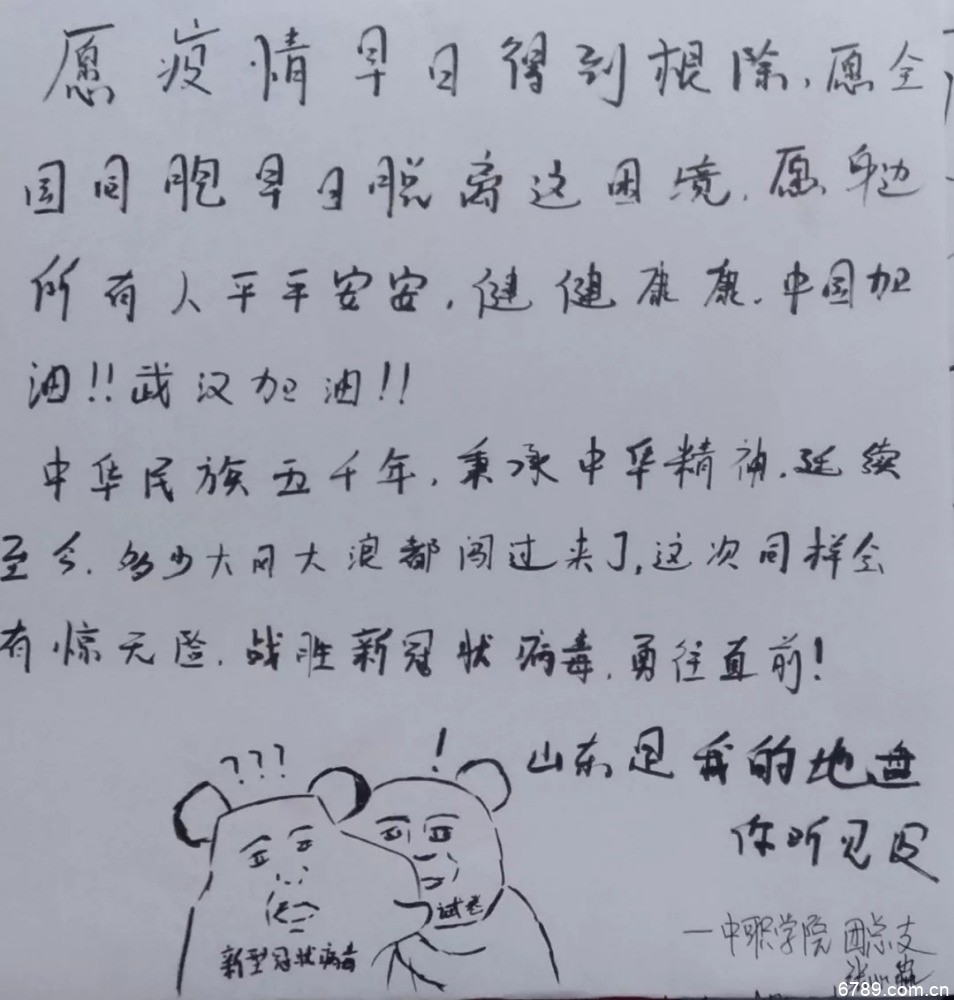 愿疫情早日得到根除,愿全
国同胞早日脱离这困境.愿身边
所有人平平安安,健健康康.中国加
油!!武汉加油!!
中华民族五千年,秉承中华精神.延续
至今.多少大风大浪都闯过来了,这次同样会
有惊无险.战胜新冠状病毒.勇往直前!
??? !
山东是我的地盘
你听见没
试卷
新型冠状病毒
—中职学院 团总支
6789.com.cn